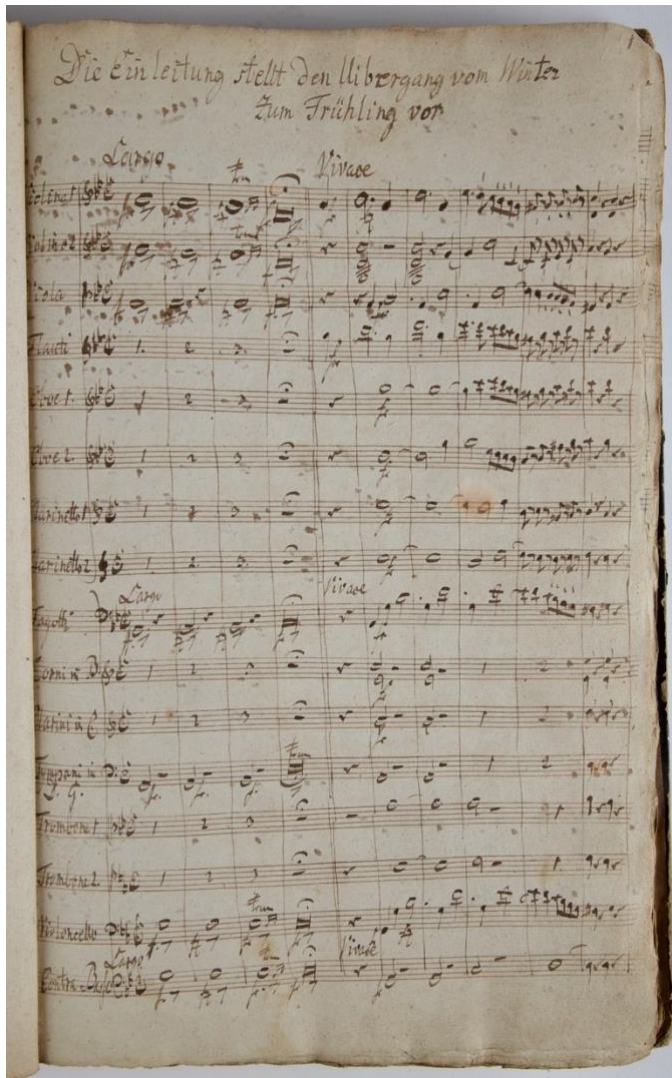 1
Die Einleitung stellt den Uibergang vom Winter
zum Frühling vor
Largo
Vivace
Violino 1
Violino 2
Viola
Flauti
Oboe 1.
Oboe 2.
Clarinetto 1
Clarinetto 2
Largo
Vivace
Fagotti
Corni in B
Clarini in C
Tympani in
D. G.
Trombone 1
Trombone 2.
Violoncello
Largo
Vivace
Contra Basso